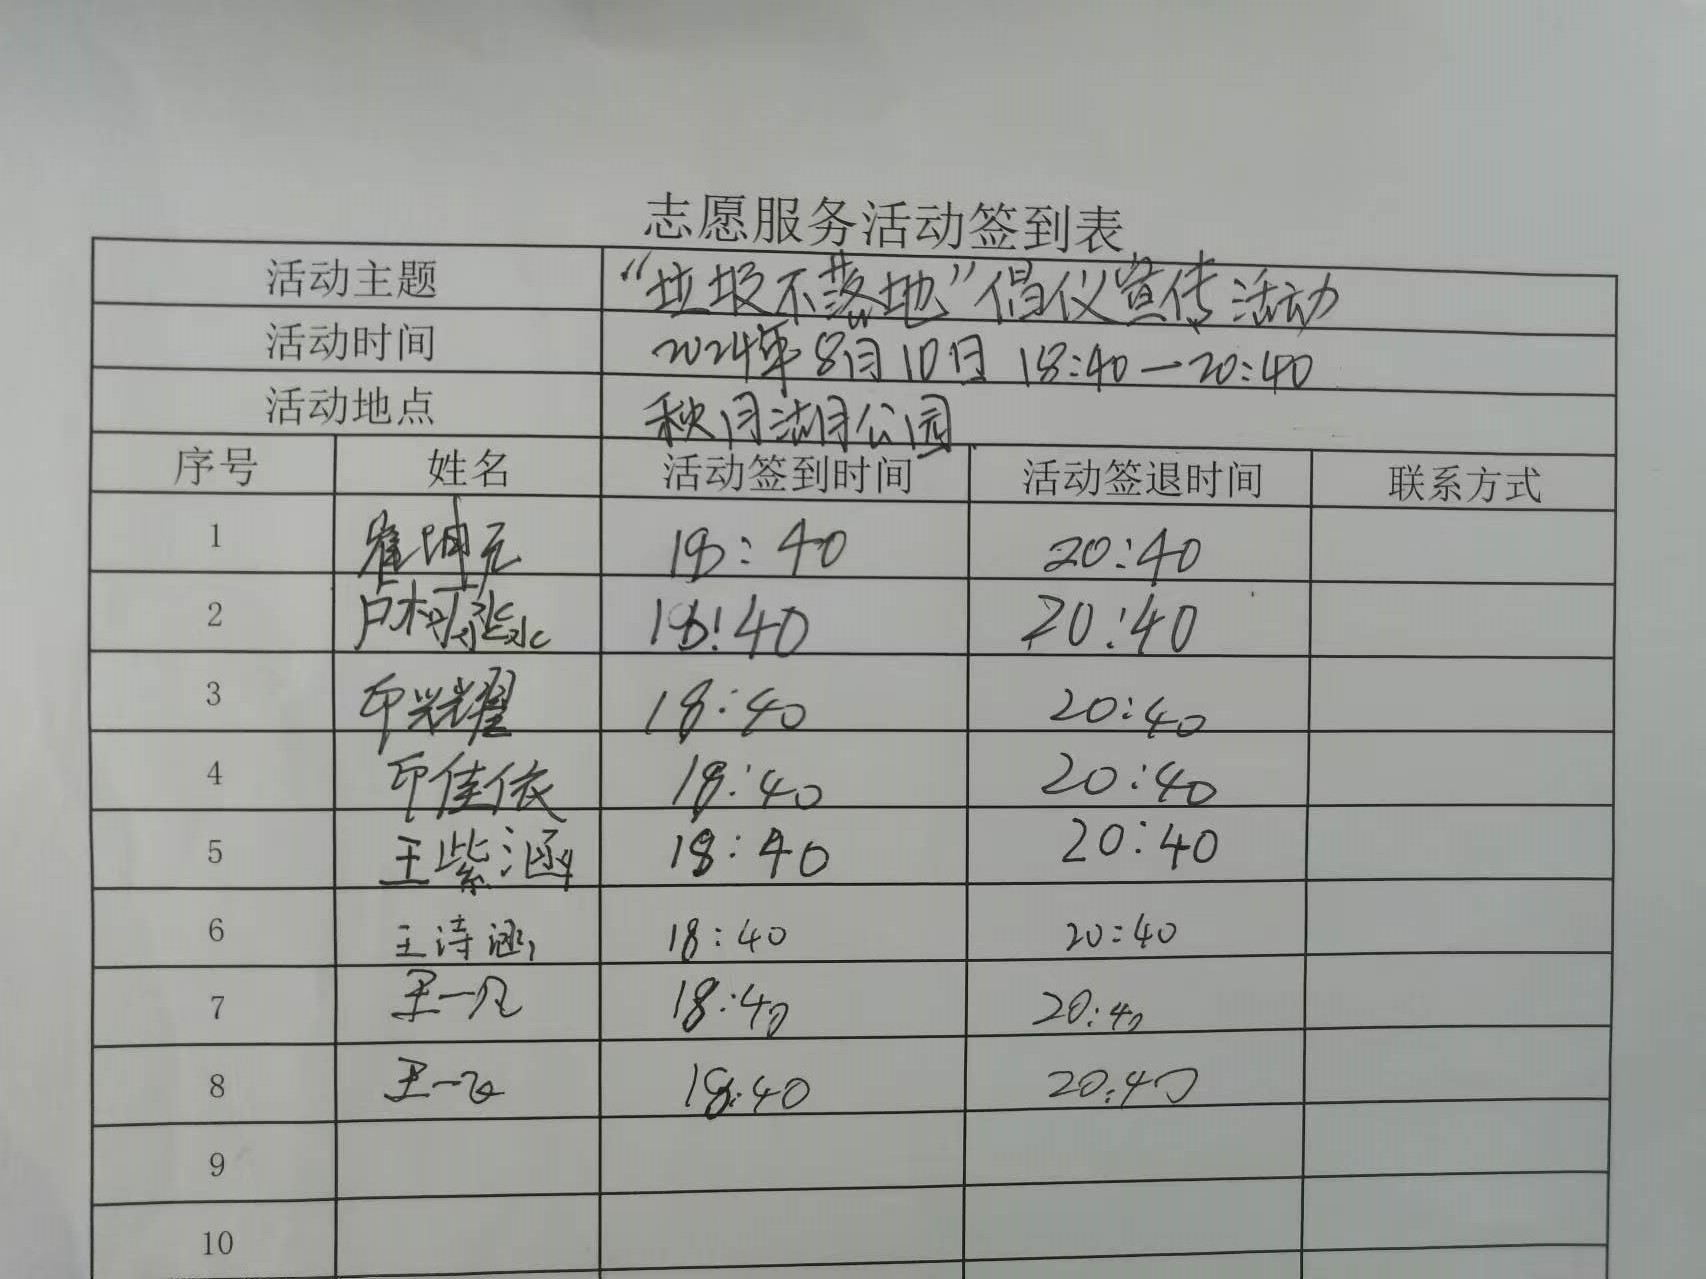 志愿服务活动签到表
活动主题 “垃圾不落地”倡仪宣传活动
活动时间 2024年8月10日 18:40—20:40
活动地点 秋月湖公园
序号 姓名 活动签到时间 活动签退时间 联系方式
1 崔坤元 18:40 20:40
2 18:40 20:40
3 印兴耀 18:40 20:40
4 印佳依 18:40 20:40
5 王紫涵 18:40 20:40
6 王诗涵 18:40 20:40
7 王一凡 18:40 20:40
8 王一飞 18:40 20:40
9
10